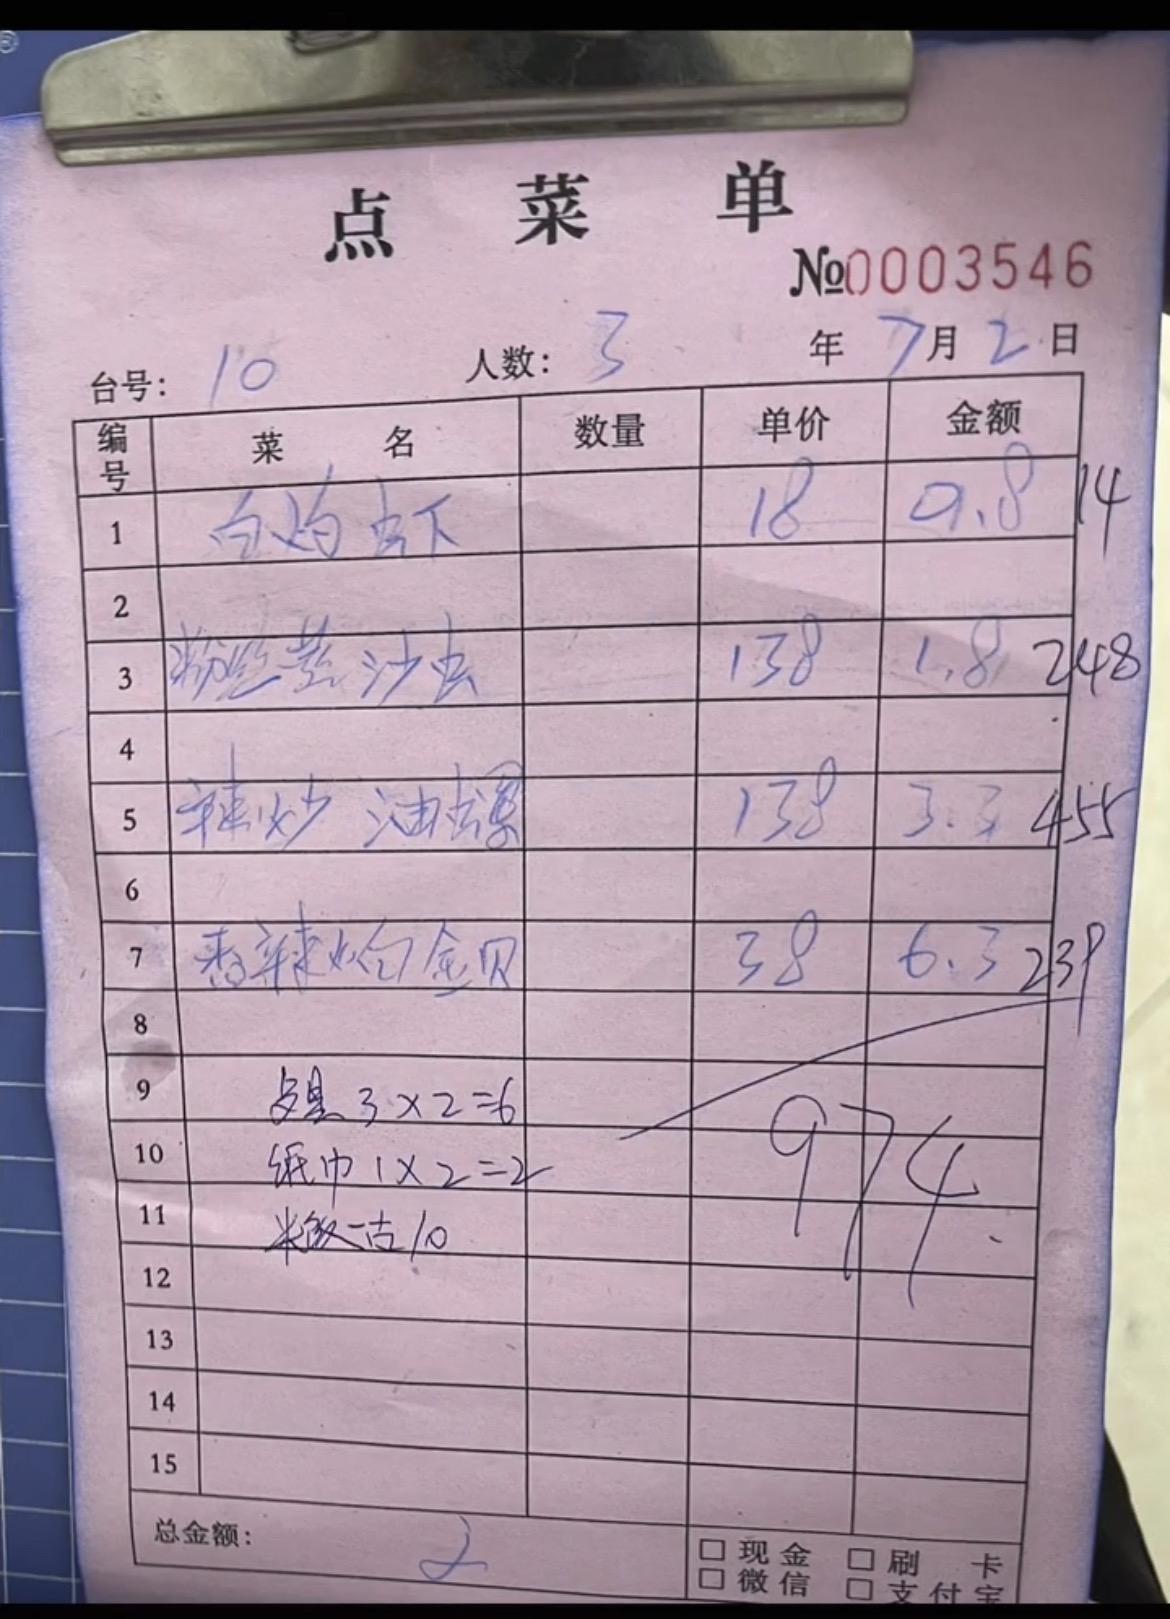 点菜单
№0003546
台号: 10 人数: 3 年 7月2日
编号 菜名 数量 单价 金额
1 白灼虾 18 0.8 14
2
3 粉丝蒸沙虫 138 1.8 248
4
5 辣炒油螺 138 3.3 455
6
7 香辣炒金贝 38 6.3 239
8
9 餐具 3×2=6
10 纸巾 1×2=2
11 米饭一古 10
974
12
13
14
15
总金额:
□ 现金 □ 刷卡
□ 微信 □ 支付宝